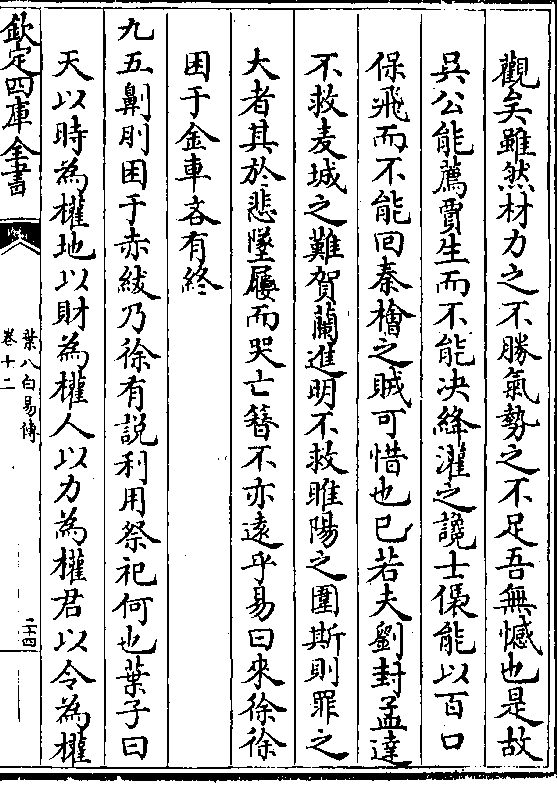 觀矣雖然材力之不勝氣勢之不足吾無憾也是故
吳公能薦賈生而不能決絳灌之讒士㒟能以百口
保飛而不能回秦檜之賊可惜也已若夫劉封孟達
不救麦城之難賀蘭進明不救睢陽之圍斯則罪之
大者其於悲墜屨而哭亡簪不亦遠乎易曰來徐徐
困于金車吝有終
九五劓刖困于赤紱乃徐有説利用祭祀何也葉子曰
天以時為權地以財為權人以力為權君以令為權
欽定四庫全書
葉八白易傳
卷十二
二十四